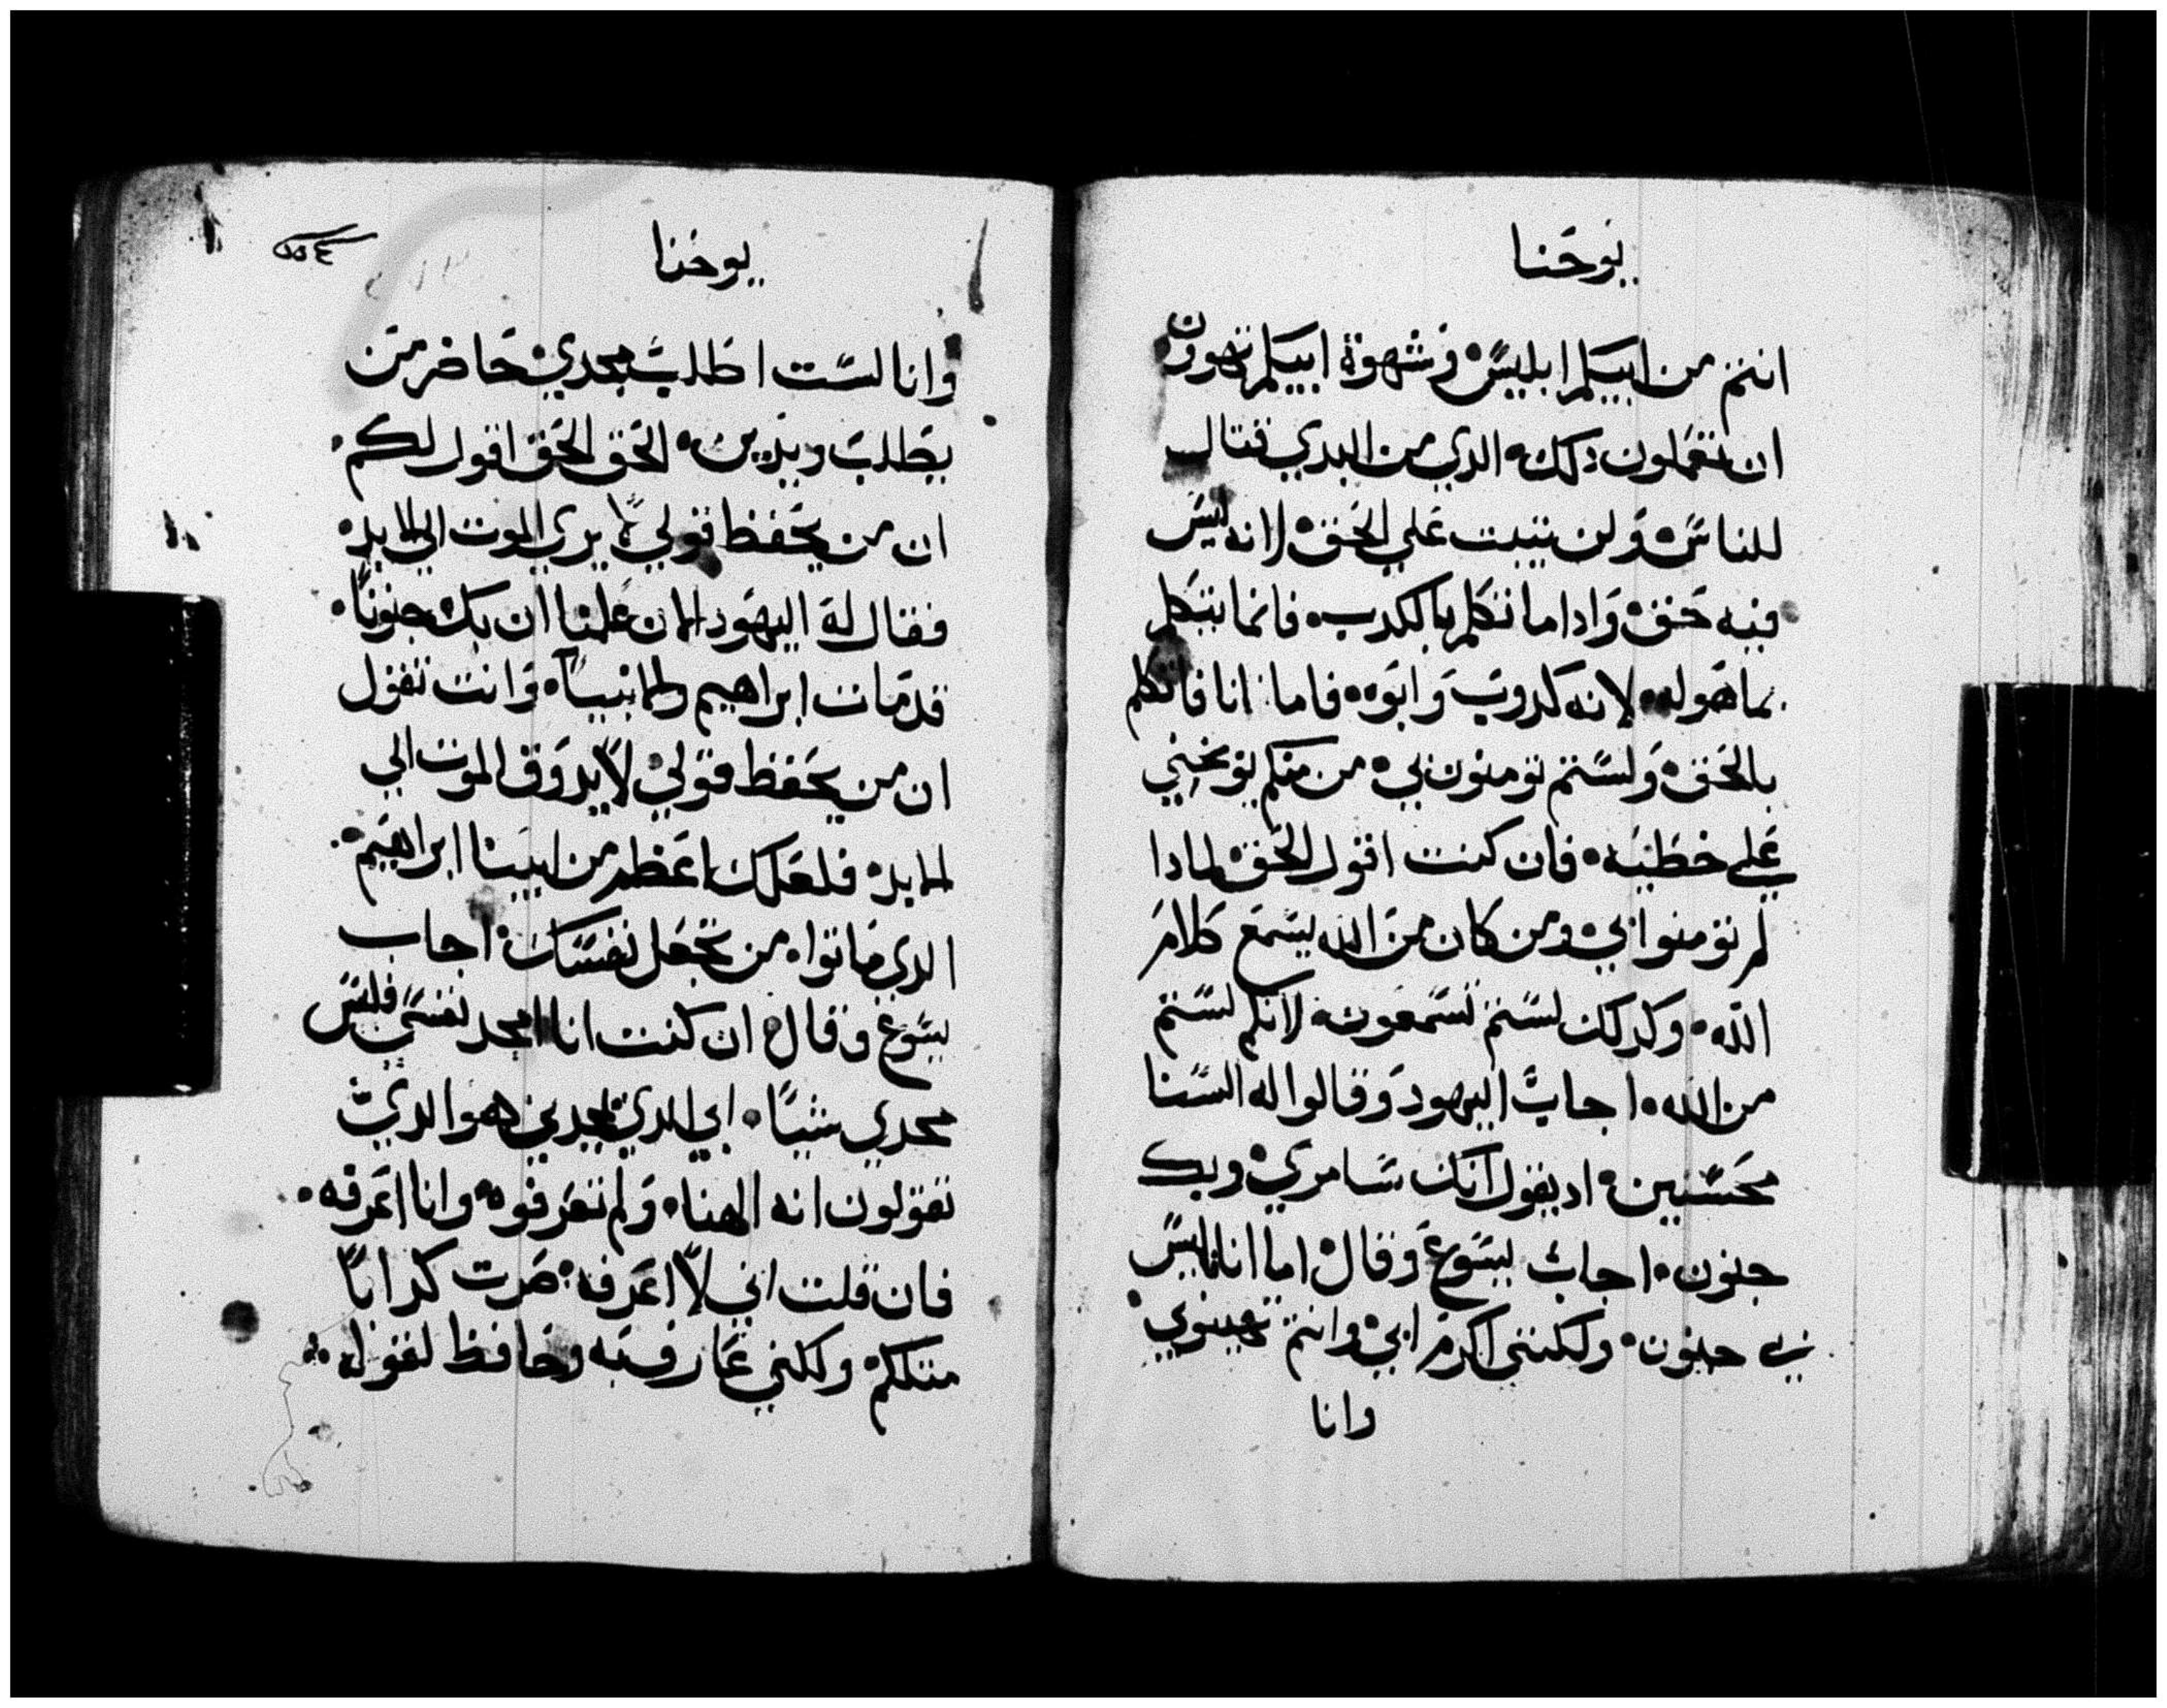 يوحنا
انتم من ابيكم ابليس۰ وشهوة ابيكم تهوون
ان تعملون ذلك۰ الدي من البدي قتال
للناس۰ ولن يتبت علي الحق۰ لانه ليس
فيه حق۰ واداما تكلم بالكدب۰ فانما يتكلم
بما هوله۰ لانه كدوب وابوه۰ فاما انا فاتكلم
بالحق۰ ولستم تومنون بي۰ من منكم يوبخني
علي خطيه۰ فان كنت اقول الحق لمادا
لم تومنوا بي۰ ومن كان من الله يسمع كلام
الله۰ وكدلك لستم تسمعون۰ لانكم لستم
من الله۰ اجاب اليهود وقالوا له السنا
محسنين۰ اد يقول انك سامري۰ وبك
جنون۰ اجاب يسوع وقال۰ اما انا فليس
بي جنون۰ ولكنني اكرم ابي۰ وانتم تهينوني۰
وانا
يوحنا
وانا لست اطلب مجدي۰ حاضر من
يطلب ويدين۰ الحق الحق اقول لكم۰
ان من يحفظ قولي۰ لا يري الموت الي الابد۰
فقال له اليهود الان علمنا ان بك جنونا۰
قد مات ابراهيم والانبيا۰ وانت تقول
ان من يحفظ قولي۰ لا يدوق الموت الي
الابد۰ فلعلك اعظم من ابينا ابراهيم۰
الدي ماتوا۰ من تجعل نفسك۰ اجاب
يسوع وقال۰ ان كنت انا امجد نفسي فليس
مجدي شيا۰ ابي الدي يمجدني هو الدي
تقولون انه الهنا۰ ولم تعرفوه۰ وانا اعرفه۰
فان قلت اني لا اعرفه۰ صرت كدابا
متلكم۰ ولكني عارف به وحافظ لقوله